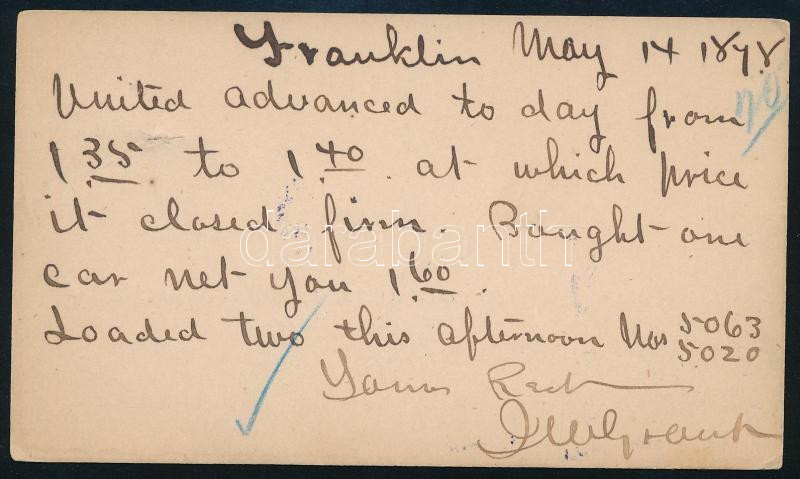 Franklin May 14 1878
United advanced to day from
1.35 to 1.40 at which price
it closed firm. Bought one
car net you 1.60.
Loaded two this afternoon Nos 5063
5020
Yours Rect
J W Grant
darabanth